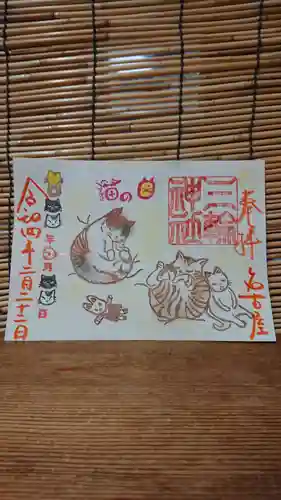 奉拝 名古屋
三輪神社
猫の日
令和四年二月二十二日